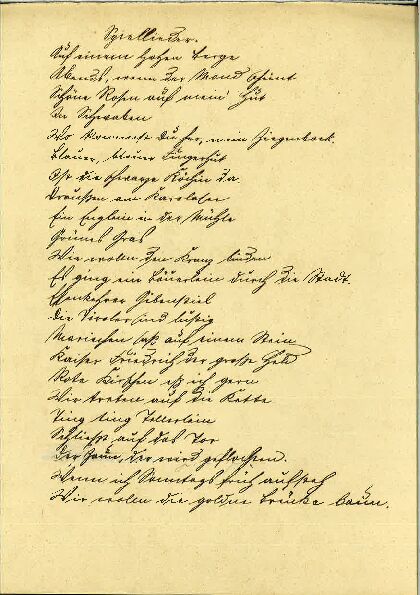 Spiellieder.
Auf einem hohen Berge
Abends, wenn der Mond scheint
Schöne Rosen auf mein' Hut
In Schwaben
Wo kommst Du her, mein Ziegenbock.
Blauer, blauer Fingerhut
Ist die schwarze Köchin da
Draußen am
Ein Englein in der Mühle
Grünes Gras
Wir wollen den Kranz binden
Es ging ein Bäuerlein durch die Stadt.
Die Tiroler sind lustig
Mariechen saß auf einem Stein
Kaiser Friedrich der große Held
Rote Kirschen eß ich gern
Wir treten auf die Kette
Ting ting Tellerlein
Schließt auf das Tor
Der Zaun, der wird geflochten.
Wenn ich Sonntags früh aufsteh
Wir wollen die goldne Brücke baun.